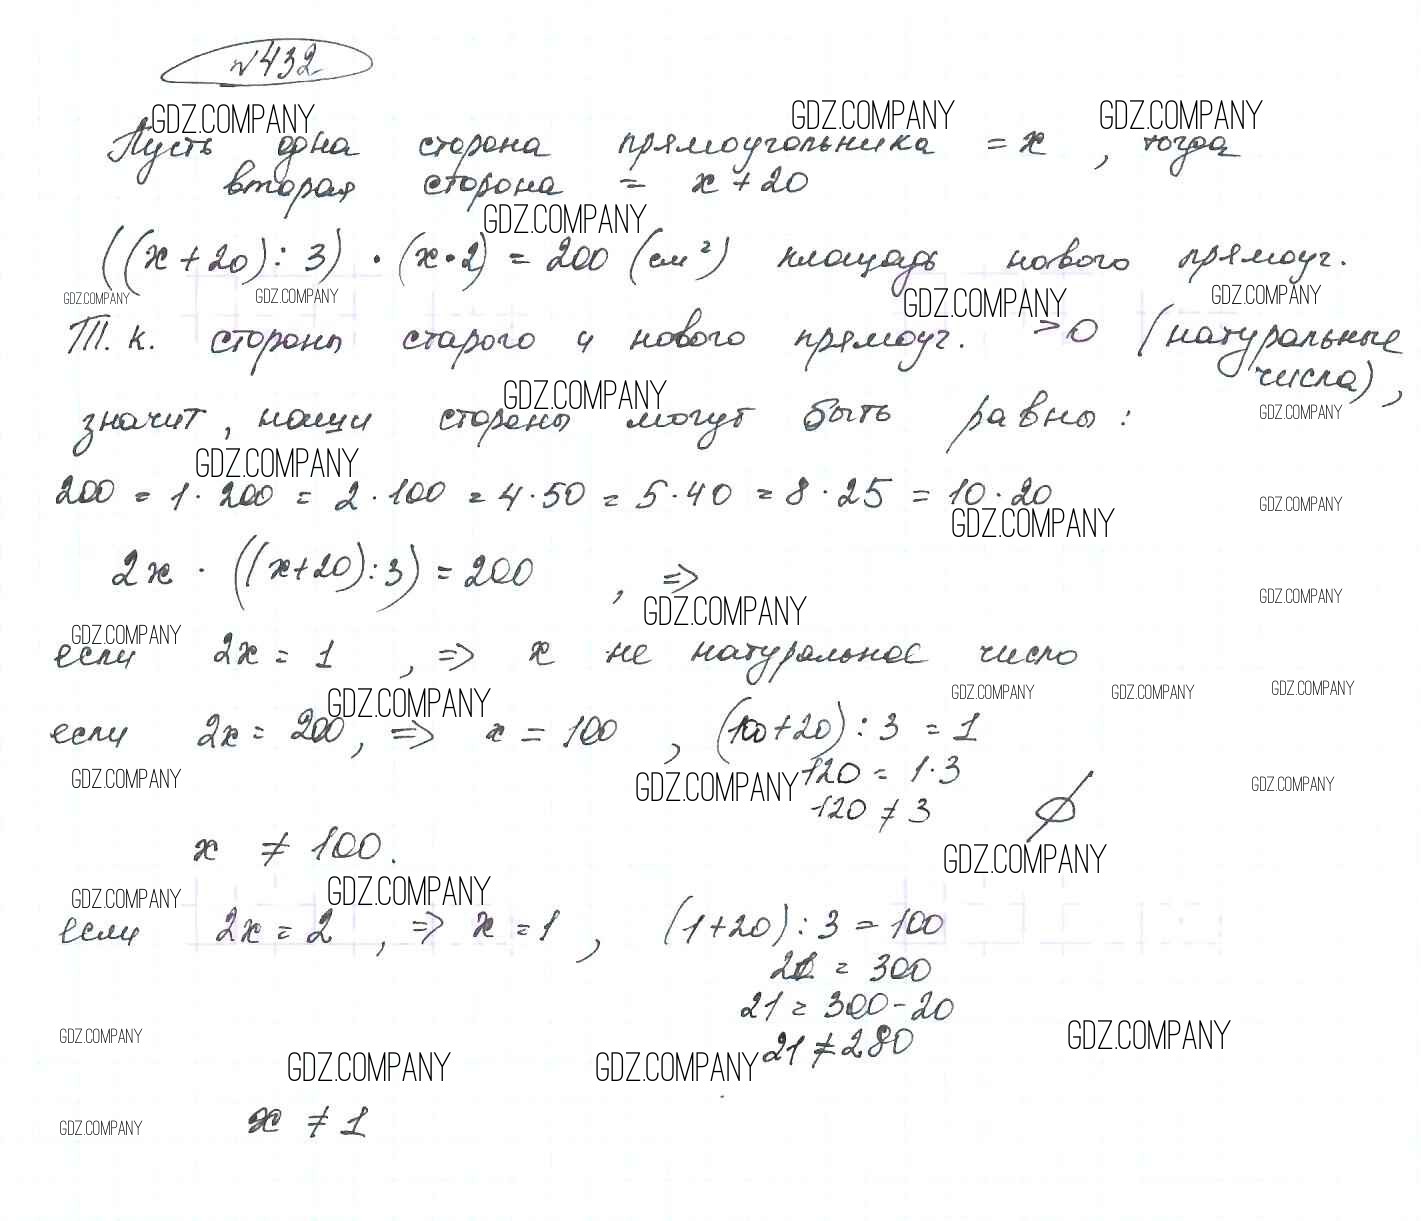 №432
GDZ.COMPANY GDZ.COMPANY GDZ.COMPANY
Пусть одна сторона прямоугольника = x , тогда
вторая сторона = x + 20
GDZ.COMPANY
((x + 20) : 3) • (x • 2) = 200 (см²) площадь нового прямоуг.
GDZ.COMPANY GDZ.COMPANY GDZ.COMPANY GDZ.COMPANY
Т. к. стороны старого и нового прямоуг. > 0 (натуральные
числа),
GDZ.COMPANY GDZ.COMPANY
значит, наши стороны могут быть равны :
GDZ.COMPANY
200 = 1 · 200 = 2 · 100 = 4 · 50 = 5 · 40 = 8 · 25 = 10 · 20
GDZ.COMPANY GDZ.COMPANY
2x · ((x+20) : 3) = 200 , =>
GDZ.COMPANY GDZ.COMPANY
GDZ.COMPANY
если 2x = 1 , => x не натуральное число
GDZ.COMPANY GDZ.COMPANY GDZ.COMPANY GDZ.COMPANY
если 2x = 200 , => x = 100 , (100+20) : 3 = 1
GDZ.COMPANY GDZ.COMPANY 120 = 1·3 GDZ.COMPANY
120 ≠ 3 ∅
x ≠ 100.
GDZ.COMPANY
GDZ.COMPANY GDZ.COMPANY
если 2x = 2 , => x = 1 , (1+20) : 3 = 100
21 = 300
21 = 300 - 20
GDZ.COMPANY GDZ.COMPANY
21 ≠ 280
GDZ.COMPANY GDZ.COMPANY
GDZ.COMPANY x ≠ 1